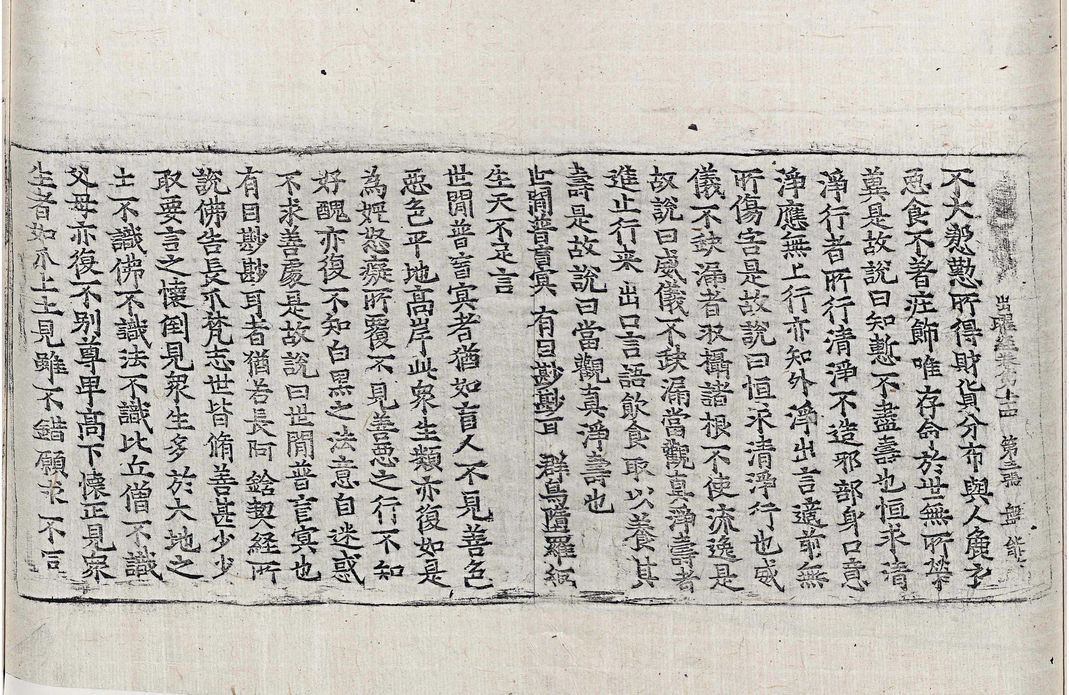 出曜經卷第十四 第三張 盤
不大慇懃所得財貨分布與人麁衣
惡食不著莊飾唯存命於世無所榮
冀是故說曰知慙不盡壽也恒求清
淨行者所行清淨不造邪部身口意
淨應無上行亦知外淨出言適前無
所傷害是故說曰恒求清淨行也威
儀不缺漏者収攝諸根不使流逸是
故說曰威儀不缺漏當觀真淨壽者
進止行來出口言語飲食取以養其
壽是故說曰當觀真淨壽也
世閒普盲冥 有目尠尠耳 群鳥墮羅網
生天不足言
世閒普盲冥者猶如盲人不見善色
惡色平地高岸此衆生類亦復如是
為婬怒癡所覆不見善惡之行不知
好醜亦復不知白黑之法意自迷惑
不求善處是故說曰世閒普盲冥也
有目尠尠耳者猶若長阿鋡契経所
說佛告長爪梵志世皆脩善甚少少
取要言之懷倒見衆生多於大地之
土不識佛不識法不識比丘僧不識
父母亦復不別尊卑高下懷正見衆
生者如爪上土見雖不錯願求不同